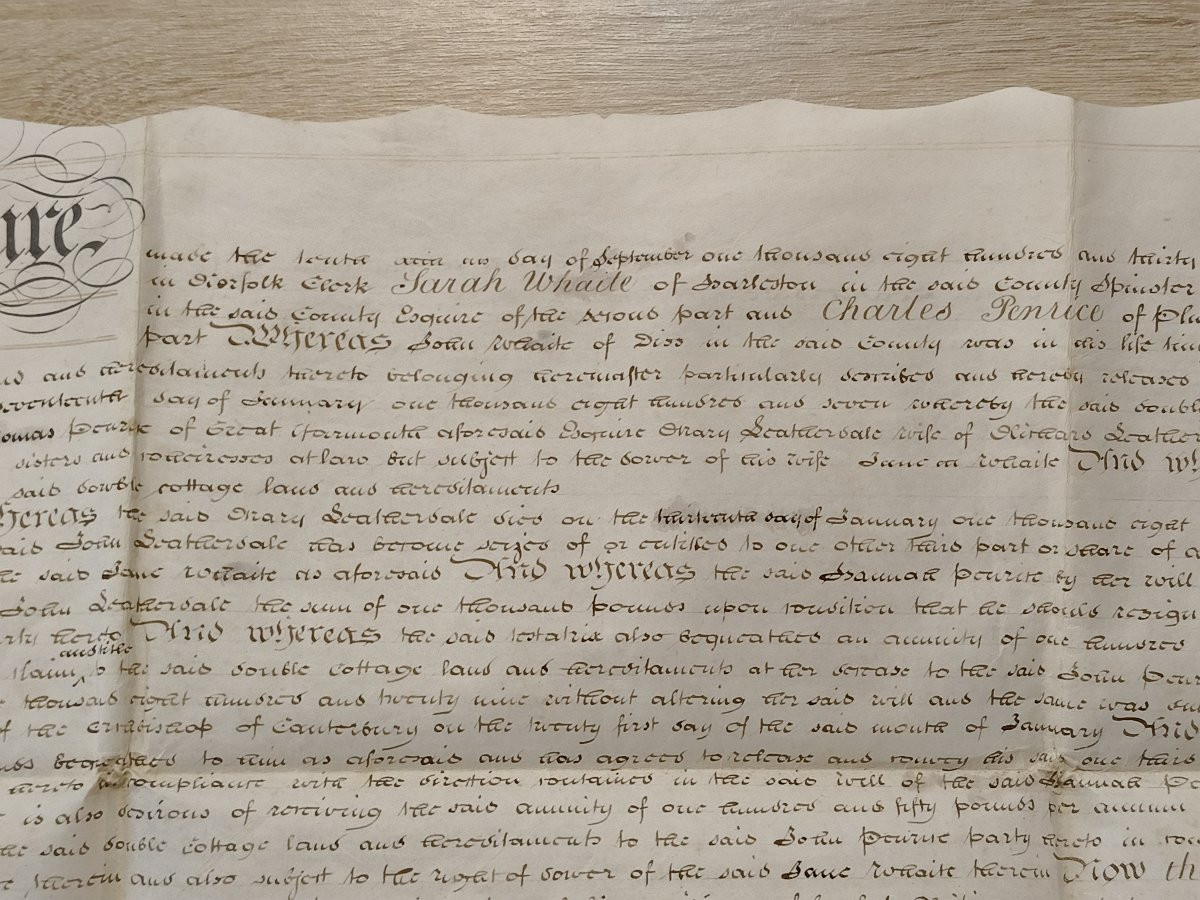 ure
made the tenth day of September one thousand eight hundred and thirty
in Norfolk Clerk Sarah Whaite of Harleston in the said County Spinster
in the said County Esquire of the second part and Charles Penrice of
part Whereas John Whaite of Diss in the said County was in his life
and hereditaments thereto belonging hereinafter particularly described and hereby released
seventeenth day of January one thousand eight hundred and seven whereby the said double
Thomas Penrice of Great Yarmouth aforesaid Esquire Mary Leathersdale wife of Richard
sisters and coheiresses at law but subject to the dower of his wife Jane Whaite And
said double cottage land and hereditaments
Whereas the said Mary Leathersdale died on the thirteenth day of January one thousand eight
said John Leathersdale has become seized of or entitled to one other third part or share of
the said Jane Whaite as aforesaid And whereas the said Hannah Penrice by her will
John Leathersdale the sum of one thousand pounds upon condition that he should resign
hereto And whereas the said testatrix also bequeathed an annuity of one hundred
and title
claim to the said double cottage land and hereditaments at her decease to the said John
thousand eight hundred and twenty nine without altering her said will and the same was
of the Archbishop of Canterbury on the twenty first day of the said month of January And
bequeathed to him as aforesaid and has agreed to release and convey his said one third
hereto in compliance with the direction contained in the said will of the said Hannah
is also desirous of receiving the said annuity of one hundred and fifty pounds per annum
the said double cottage land and hereditaments to the said John Penrice party hereto in
therein and also subject to the right of dower of the said Jane Whaite therein Now